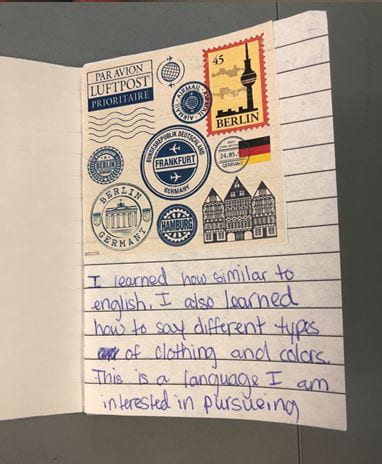 PAR AVION
LUFTPOST
PRIORITAIRE
AIRMAIL
45
BERLIN
BUNDESREPUBLIK DEUTSCHLAND
FRANKFURT
GERMANY
BERLIN
24.05
GERMANY
BERLIN
GERMANY
HAMBURG
I learned how similar to
english. I also learned
how to say different types
of clothing and colors.
This is a language I am
interested in pursueing